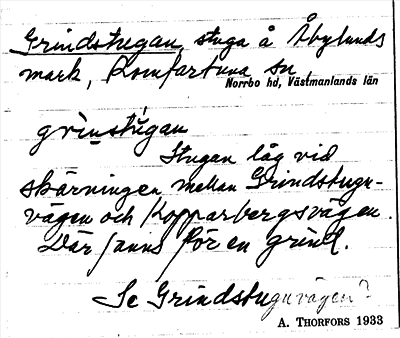 Grindstugan, stuga å Åbylunds
mark, Romfartuna sn
Norrbo hd, Västmanlands län
grinstúgan
Stugan låg vid
skärningen mellan Grindstugu-
vägen och Kopparbergsvägen.
Där fanns för en grind.
Se Grindstuguvägen?
A. THORFORS 1933